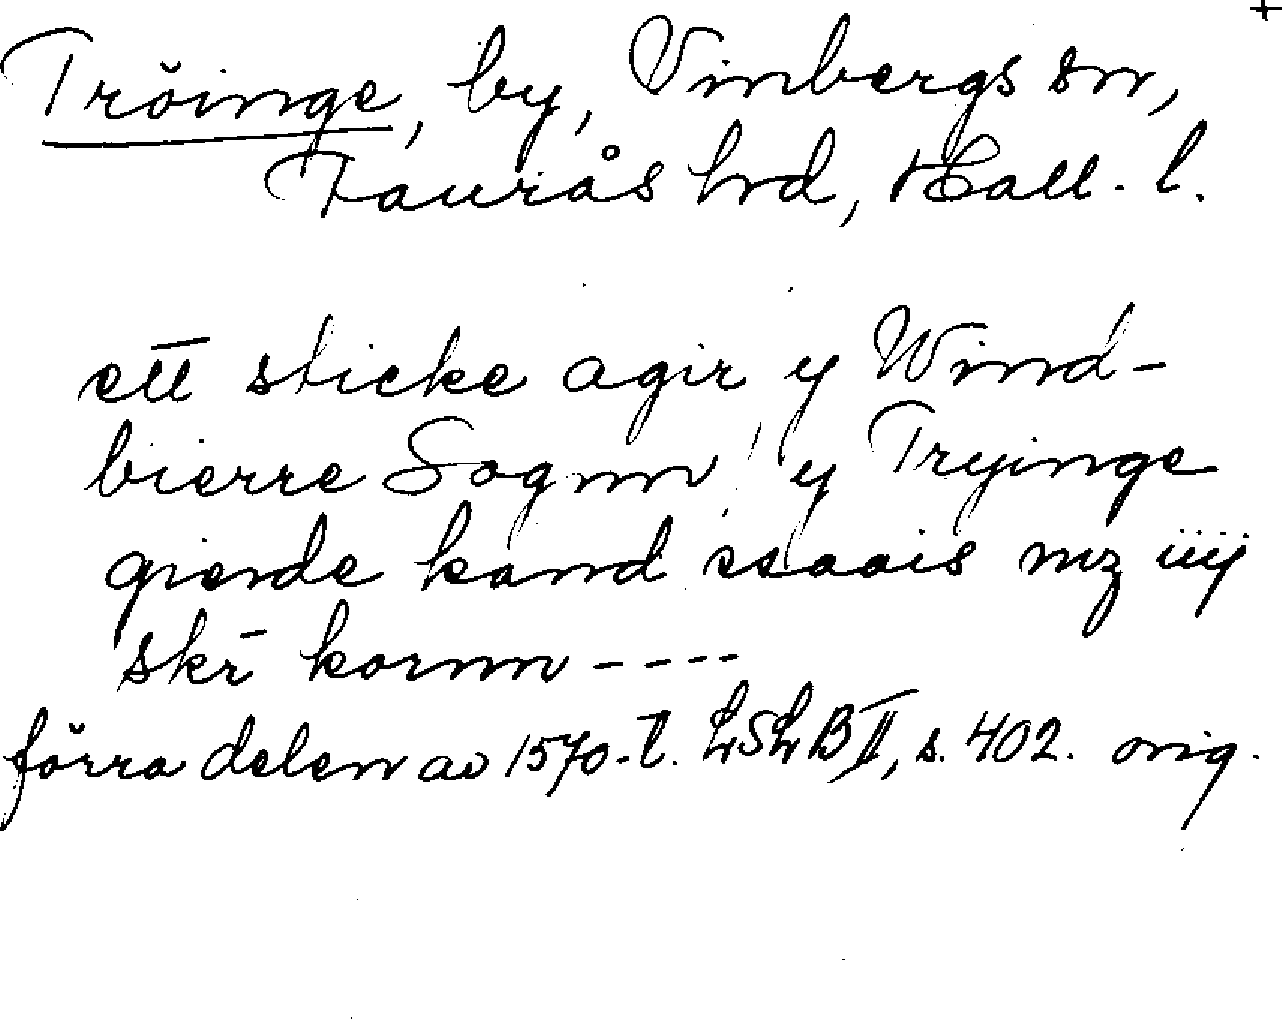 Tröinge, by, Vinbergs sn,
Faurås hrd, Hall. l.
ett sticke agir y Wind-
bierre Sognn y Tryinge
gierde kand ssaais mz iiij
skr̄ kornn ----
förra delen av 1570-t. LSLB II, s. 402. orig.